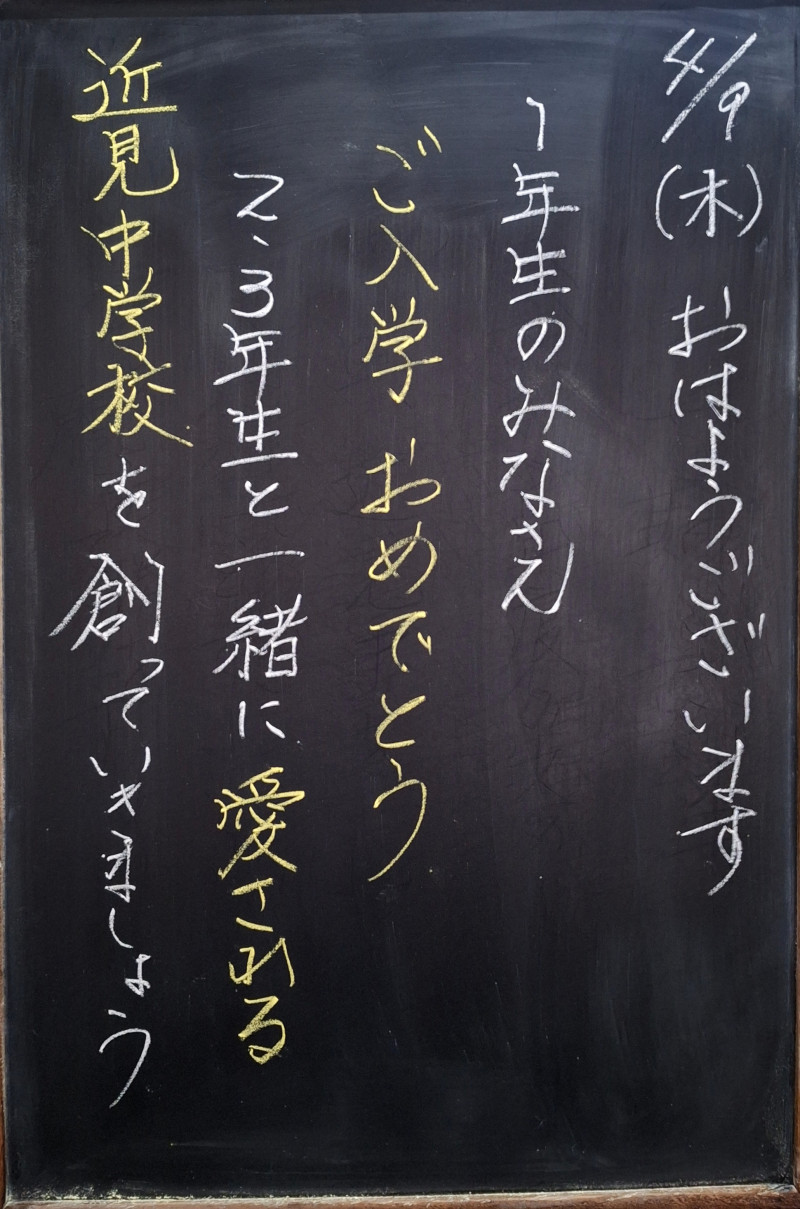 4/9(木) おはようございます
1年生のみなさん
ご入学 おめでとう
2、3年生と一緒に愛される
近見中学校を創っていきましょう